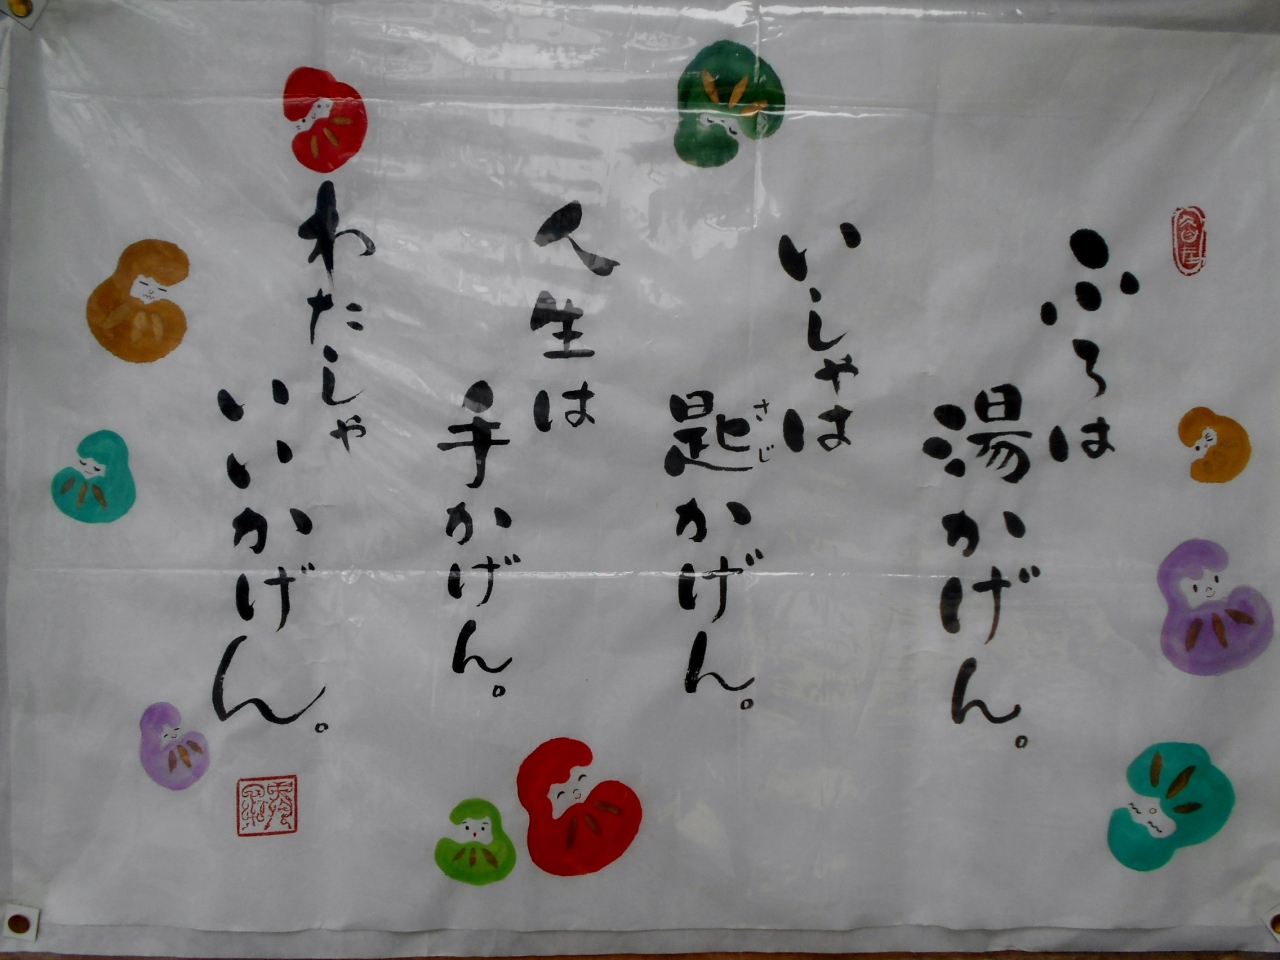 ふろは
湯かげん。
いしゃは
匙かげん。
さじ
人生は
手かげん。
わたしゃ
いいかげん。